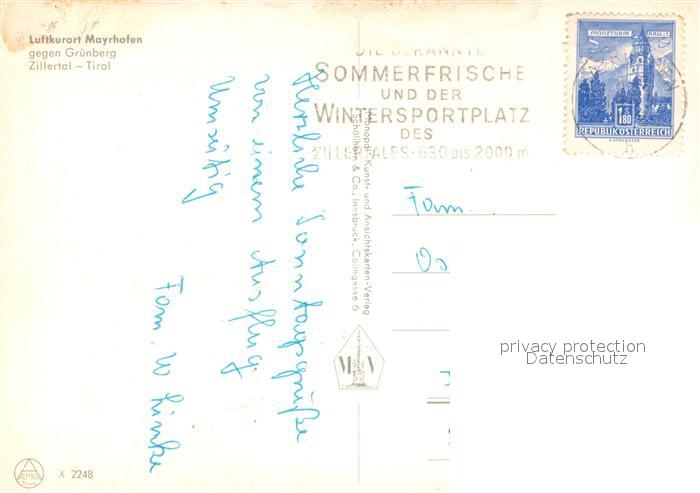 Luftkurort Mayrhofen
gegen Grünberg
Zillertal – Tirol
DIE BEKANNTE
SOMMERFRISCHE
UND DER
WINTERSPORTPLATZ
DES
ZILLERTALES - 630 BIS 2000 m
MÜNZTURM HALL I. T.
S 1.80
REPUBLIK ÖSTERREICH
Herzliche Sonntagsgrüße
von einem Ausflug
Fam. W Linke
Monopol-Kunst- und Ansichtskarten-Verlag
Schöllhorn & Co., Innsbruck, Colingasse 6
Fam.
M V
privacy protection
Datenschutz
ALPINA
X 2248